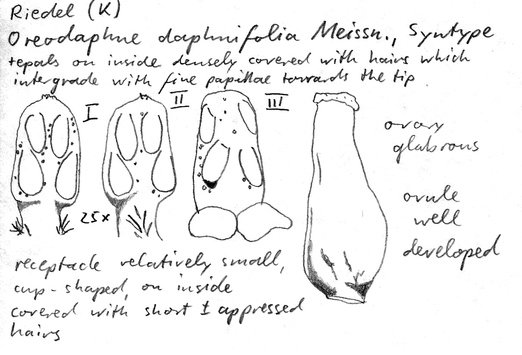 Riedel (K)
Oreodaphne daphnifolia Meissn., Syntype
tepals on inside densely covered with hairs which
intergrade with fine papillae towards the tip
I
II
III
25x
ovary
glabrous
ovule
well
developed
receptacle relatively small,
cup-shaped, on inside
covered with short ± appressed
hairs